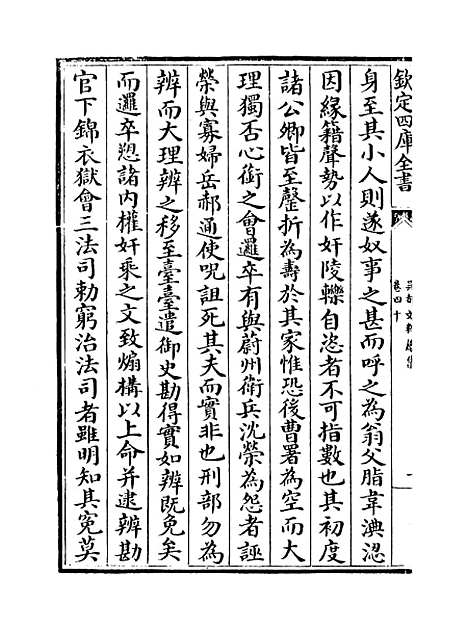 欽定四庫全書
卷四十
身至其小人則遂奴事之甚而呼之為翁父脂韋淟涊
因緣籍聲勢以作奸陵轢自恣者不可指數也其初度
諸公卿皆至罄折為壽於其家惟恐後曹署為空而大
理獨否心銜之會邏卒有與蔚州衛兵沈榮為怨者誣
榮與寡婦岳郝通使呪詛死其夫而實非也刑部勿為
辨而大理辨之移至臺臺遣御史勘得實如辨既免矣
而邏卒愬諸內權奸乘之文致煽構以上命并逮辨勘
官下錦衣獄會三法司勅窮治法司者雖明知其寃莫